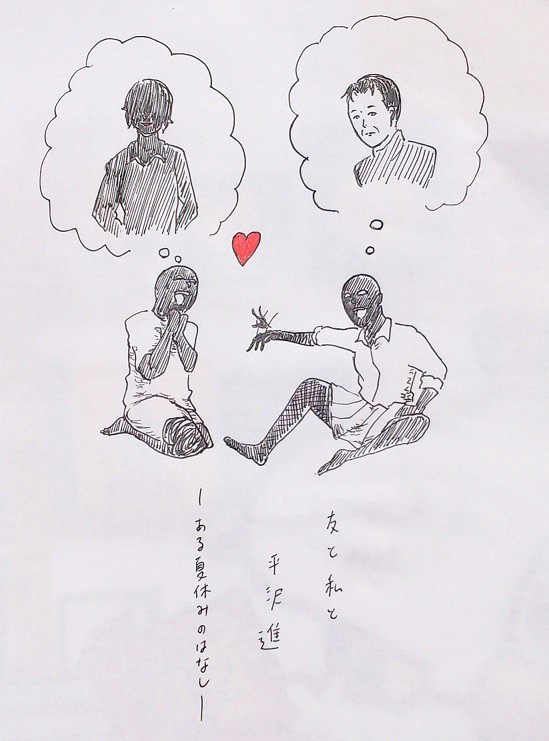 友と私と
平沢進
ーある夏休みのはなしー